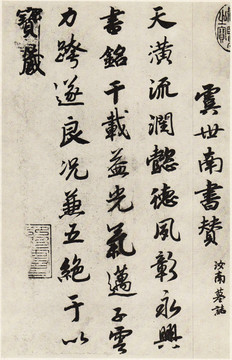 虞世南書贊
汝南墓誌
天潢流潤懿德風彰永興
書銘千載益光氣邁子雲
力跨遂良況兼五絕于以
寶藏